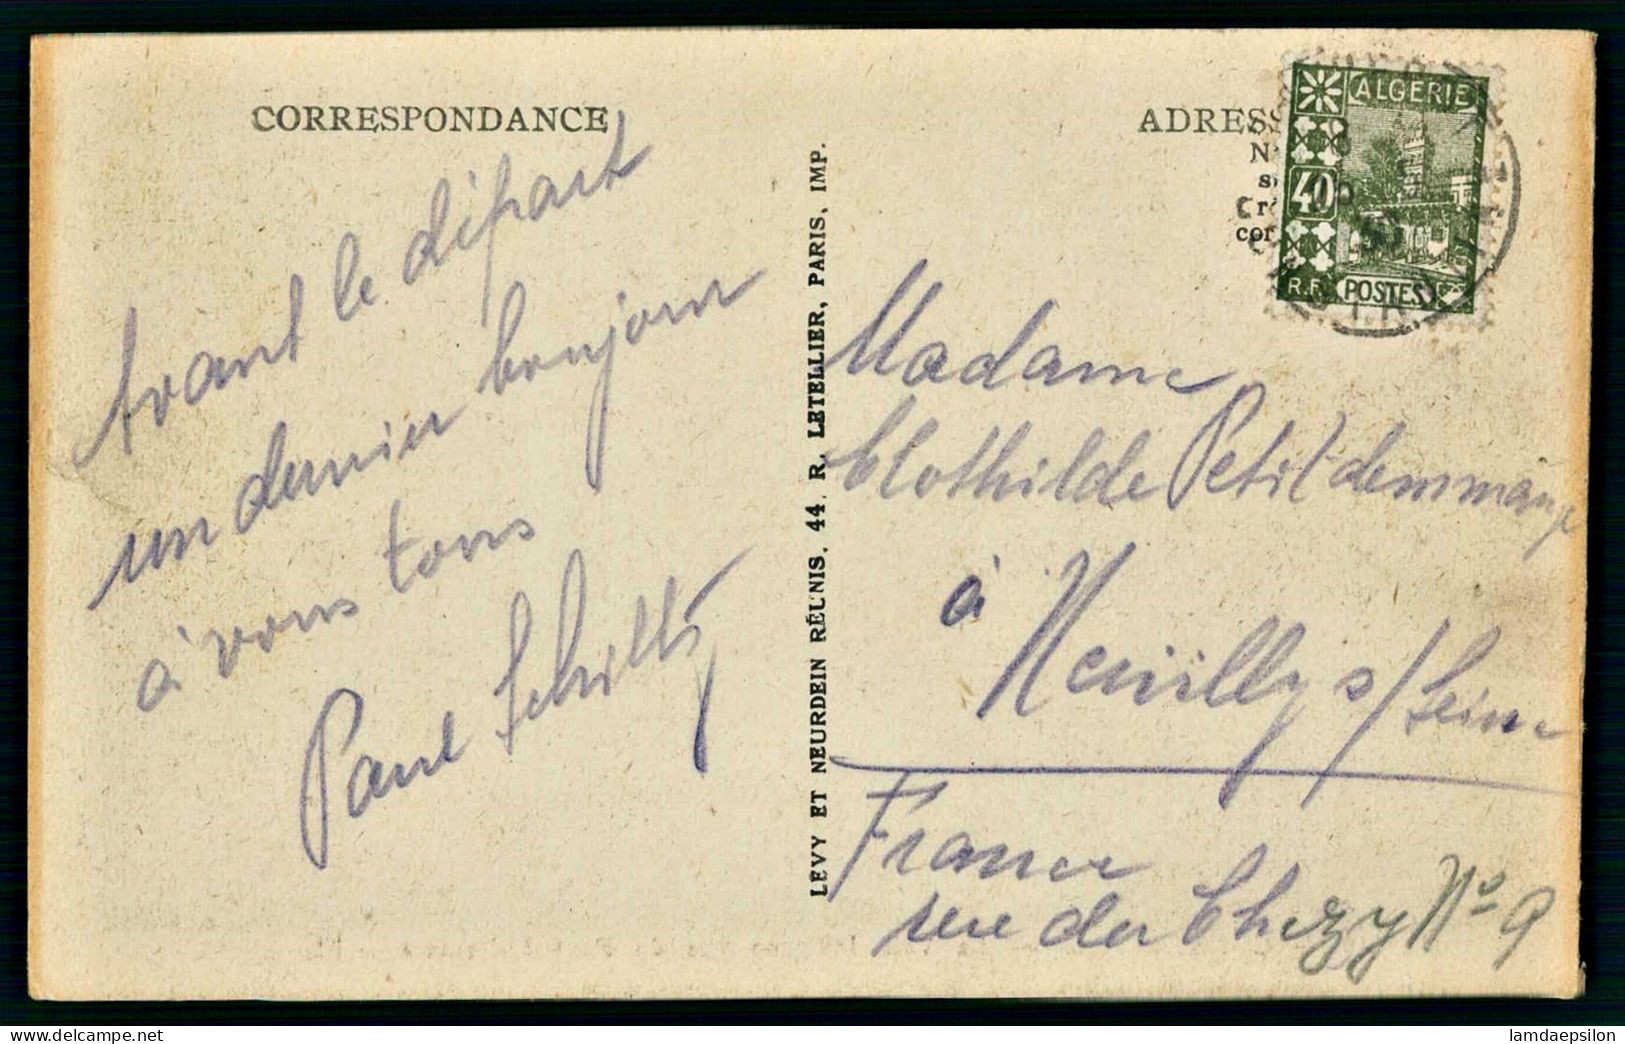 CORRESPONDANCE
Avant le départ
un dernier bonjour
à vous tous
Paul Schilly
LEVY ET NEURDEIN RÉUNIS, 44. R. LETELLIER, PARIS, IMP.
ADRESS
ALGERIE
40
R.F. POSTES
Madame
Clothilde Petitdemmange
à
Neuilly s/Seine
France
rue du Chezy No 9
lamdaepsilon